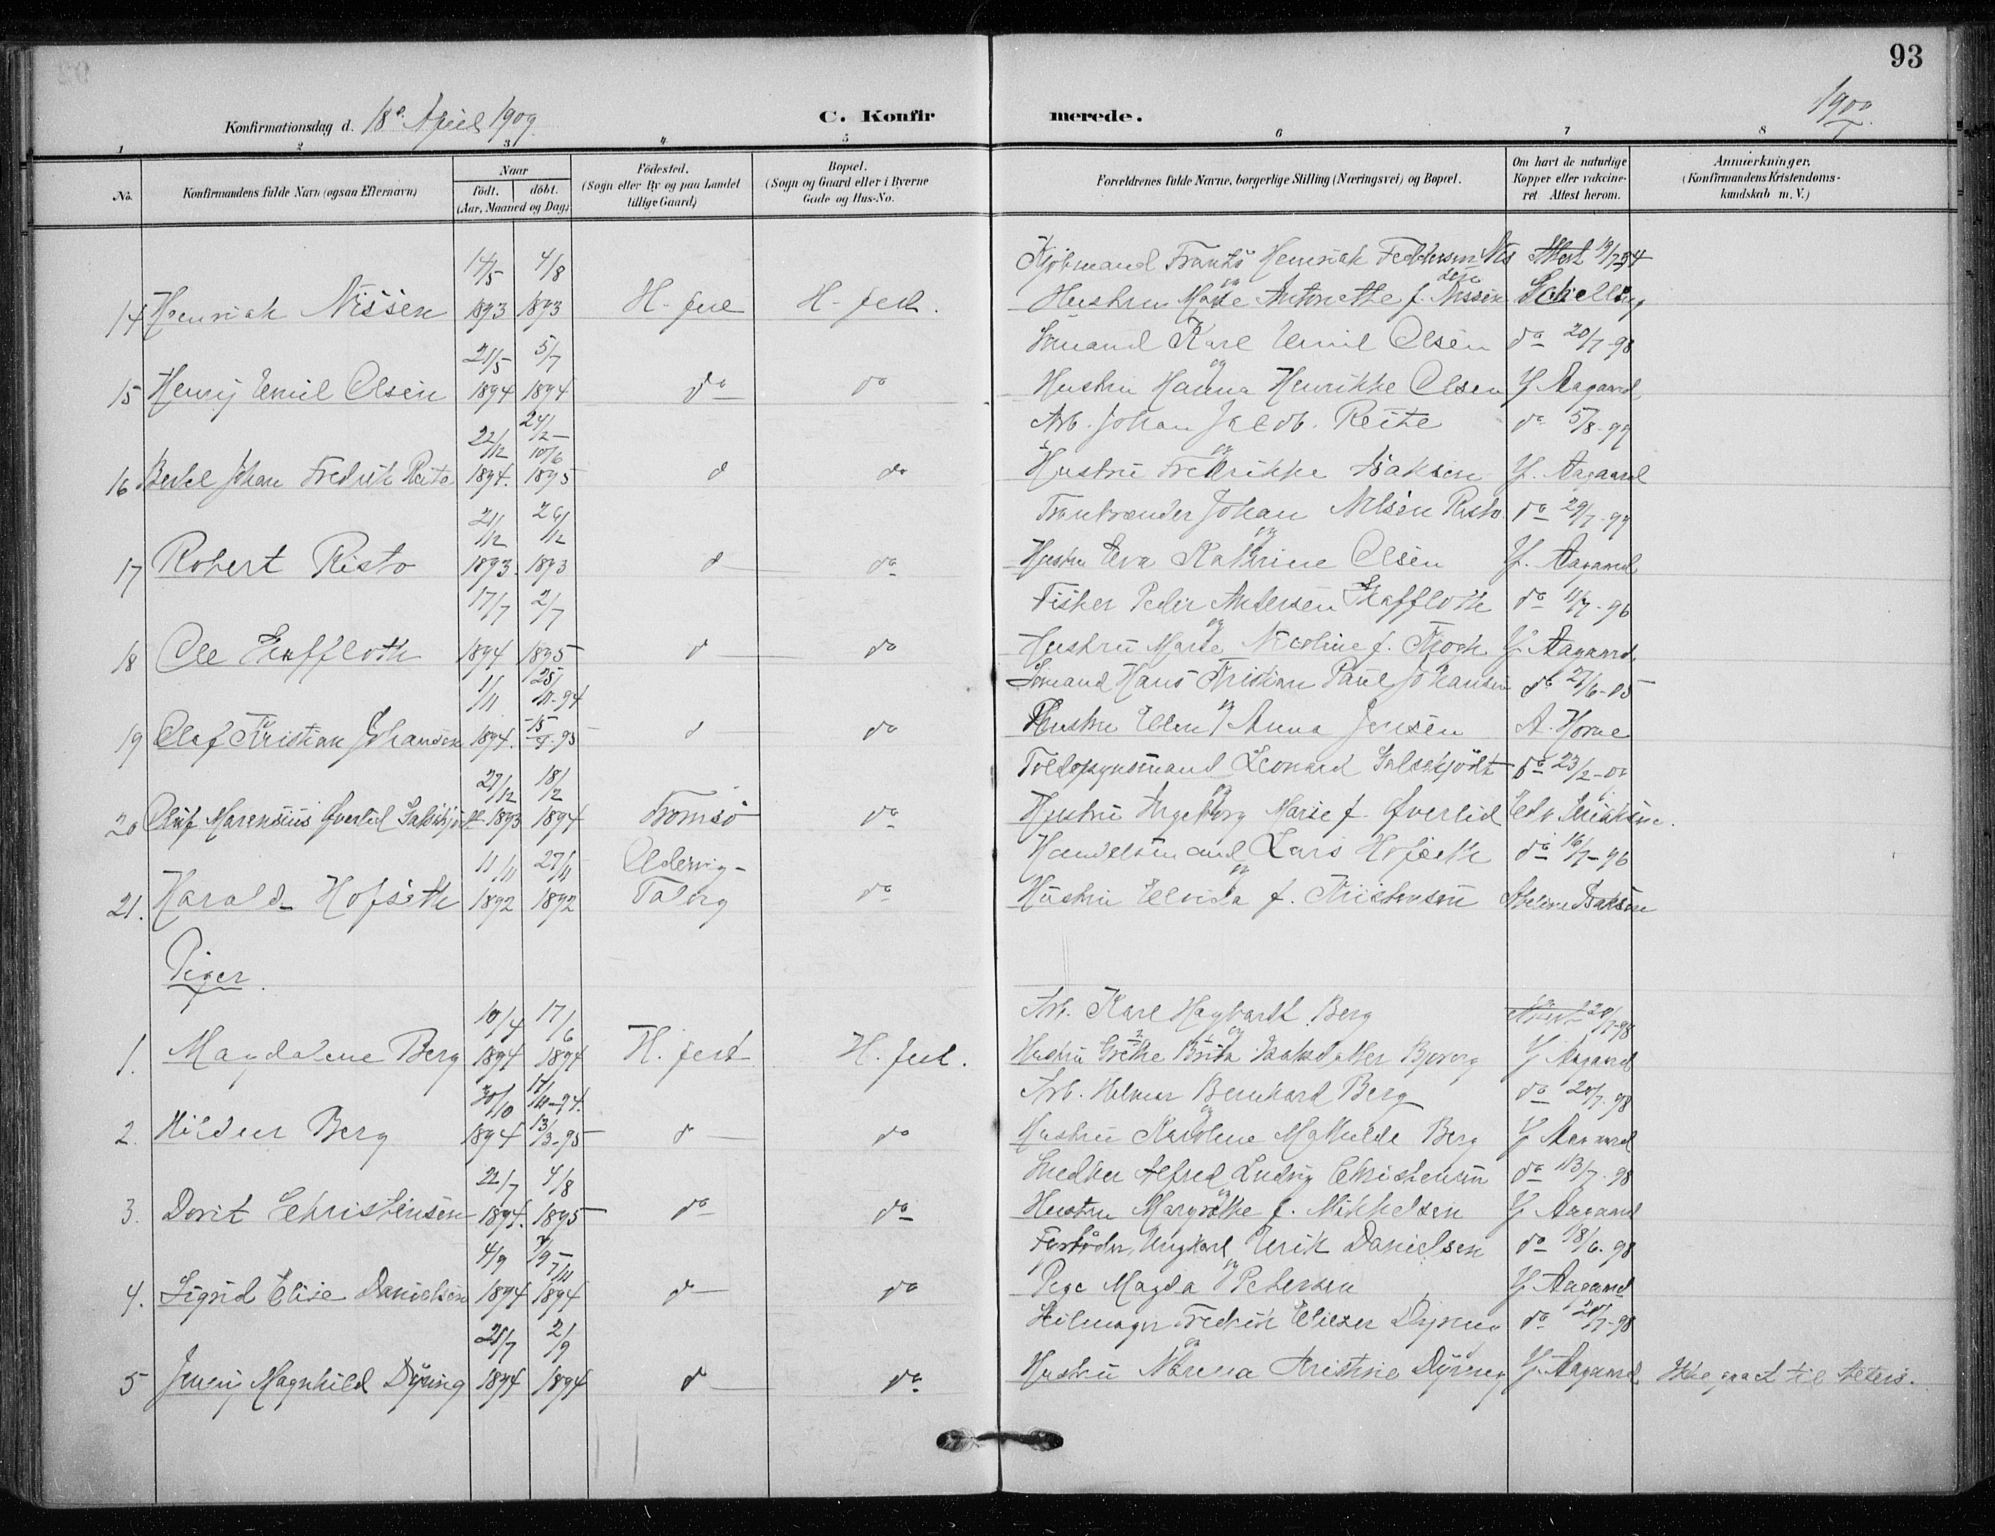 93
1909
Konfirmationsdag d. 18de April 1909.
C. Konfirmerede.
1 2 3 4 5 6 7 8
No.
Konfirmandens fulde Navn (ogsaa Efternavn)
Naar
födt. döbt.
(Aar, Maaned og Dag)
Födested.
(Sogn eller By og paa Landet
tillige Gaard)
Bopæl.
(Sogn og Gaard eller i Byerne
Gade og Hus-No.
Forældrenes fulde Navne, borgerlige Stilling (Næringsvei) og Bopæl.
Om havt de naturlige
Kopper eller vakcine-
ret Attest herom.
Anmærkninger.
(Konfirmandens Kristendoms-
kundskab m. V.)
14/5 4/8 Kjøbmand Frantz Heinrich Feddersen Nis Attest
14 Heinrich Nissen 1893 1893 H. fest H. fest. og Hustru Marie Antonette f. Nissen
21/5 5/7 Sømand Karl Emil Olsen do 20/7-98
15 Henry Emil Olsen 1894 1894 do do og Hustru Hanna Henrikke Olsen Y. Aagaard
22/12 24/12- 10/6 Arb. Johan Jacob Reite do 5/8-99
16 Johan Fredrik Reito 1894. 1895 d do og Hustru Fredrikke Isaksen Y. Aagaard
21/12 26/12 Johan Nilsen Risto do 29/7-99
17 Robert Risto 1893. 1893 d do og Hustru Eva Kathrine Olsen Y. Aagaard
17/7 2/7 Fisker Peder Andersen do 11/7-96
18 Ole 1894 1895 d do og Hustru Marie Nicoline f. Y. Aagaard.
1/11 25/11-94 Sømand Hans Kristian Paul Johansen do 27/6-05
19 Olaf Kristian Johansen 1894. 15/-95 d do og Hustru Ellen Anna Jensen A. Horne
27/12 18/2 Toldopsynsmand Leonard do 23/2-00
20 Oluf Marensius Øverlid 1893 1894 Tromsö do og Hustru Ingeborg Marie f. Øverlid Edv.
11/11 27/11 Handelsmand Lars Hofseth do 16/7-96
21. Harald Hofseth 1892 1892 Talvig do og Hustru Elvida f. Kristensen Isaksen
Piger.
10/4 17/6 Arb. Karl Hagbarth Berg 20/7-98
1. Magdalene Berg 1894 1894 H. fest H. fest. og Hustru Grethe Brita Isaksdatter Y. Aagaard
30/10 -94. Arb. Hilmar Bernhard Berg do 20/7-98
2. Hildur Berg 1894 13/3-95 d do og Hustru Karoline Mathilde Berg Y. Aagaard
22/7 4/8 Alfred Ludvig Christensen do 13/7-98
3. Dorit Christensen 1894. 1895 do do og Hustru Margrethe f. Mikkelsen Y. Aagaard
4/9 Ungkarl Erik Danielsen do 18/6-98
4. Sigrid Elise Danielsen 1894 1894 d do og Pige Magda Petersen Y. Aagaard
28/7 2/9 Fredrik Elieser do 20/7-98
5 Jenny Magnhild Dyring 1894 1894 d do og Hustru Kristine Dyring Y. Aagaard Ikke gaaet til Alters.